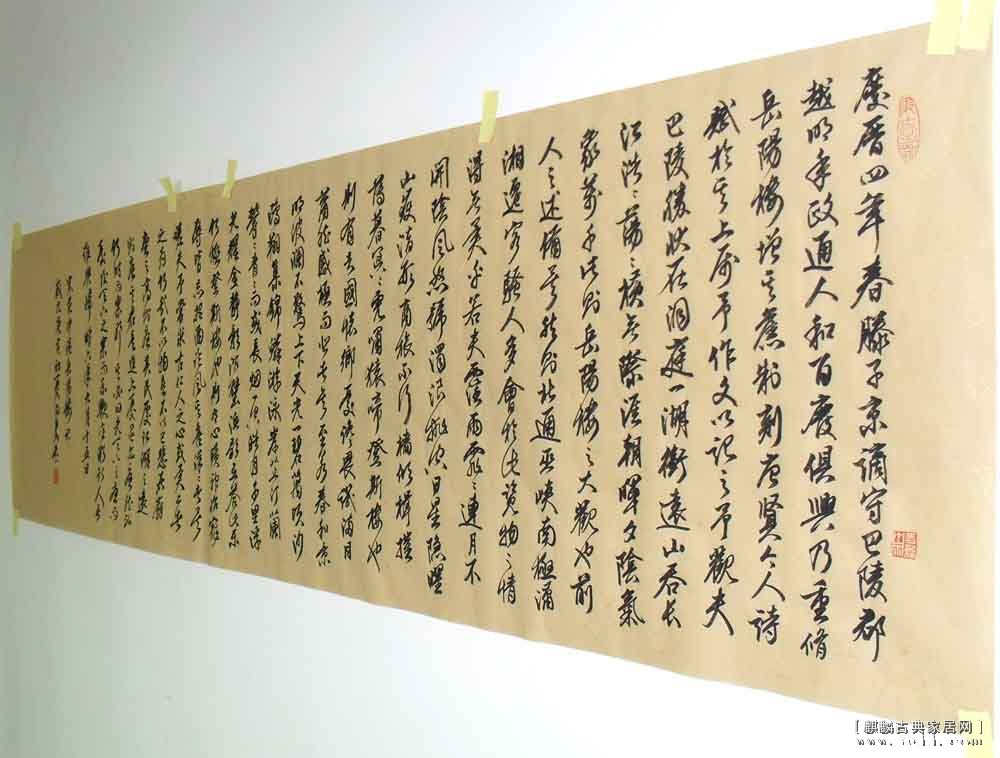 慶曆四年春滕子京謫守巴陵郡
越明年政通人和百廢俱興乃重脩
岳陽樓增其舊制刻唐賢今人詩
賦於其上屬予作文以記之予觀夫
巴陵勝狀在洞庭一湖銜遠山吞長
江浩浩蕩蕩橫無際涯朝暉夕陰氣
象萬千此則岳陽樓之大觀也前
人之述備矣然則北通巫峽南極瀟
湘遷客騷人多會於此覽物之情
得無異乎若夫霪雨霏霏連月不
開陰風怒號濁浪排空日星隱曜
山嶽潛形商旅不行檣傾楫摧
薄暮冥冥虎嘯猿啼登斯樓也
則有去國懷鄉憂讒畏譏滿目
蕭然感極而悲者矣至若春和景
明波瀾不驚上下天光一碧萬頃沙
鷗翔集錦鱗游泳岸芷汀蘭
郁郁青青而或長烟一空皓月千里浮
光耀金靜影沉璧漁歌互答此樂
何極登斯樓也則有心曠神怡寵
辱皆忘把酒臨風其喜洋洋者矣
嗟夫予嘗求古仁人之心或異二者
之為何哉不以物喜不以己悲居廟
[麒麟古典家居网]